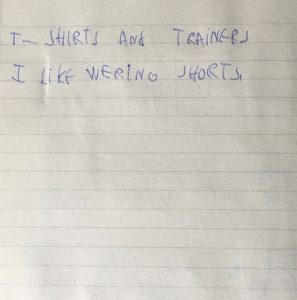 T- SHIRTS AND TRAINERS
I LIKE WERING SHORTS.